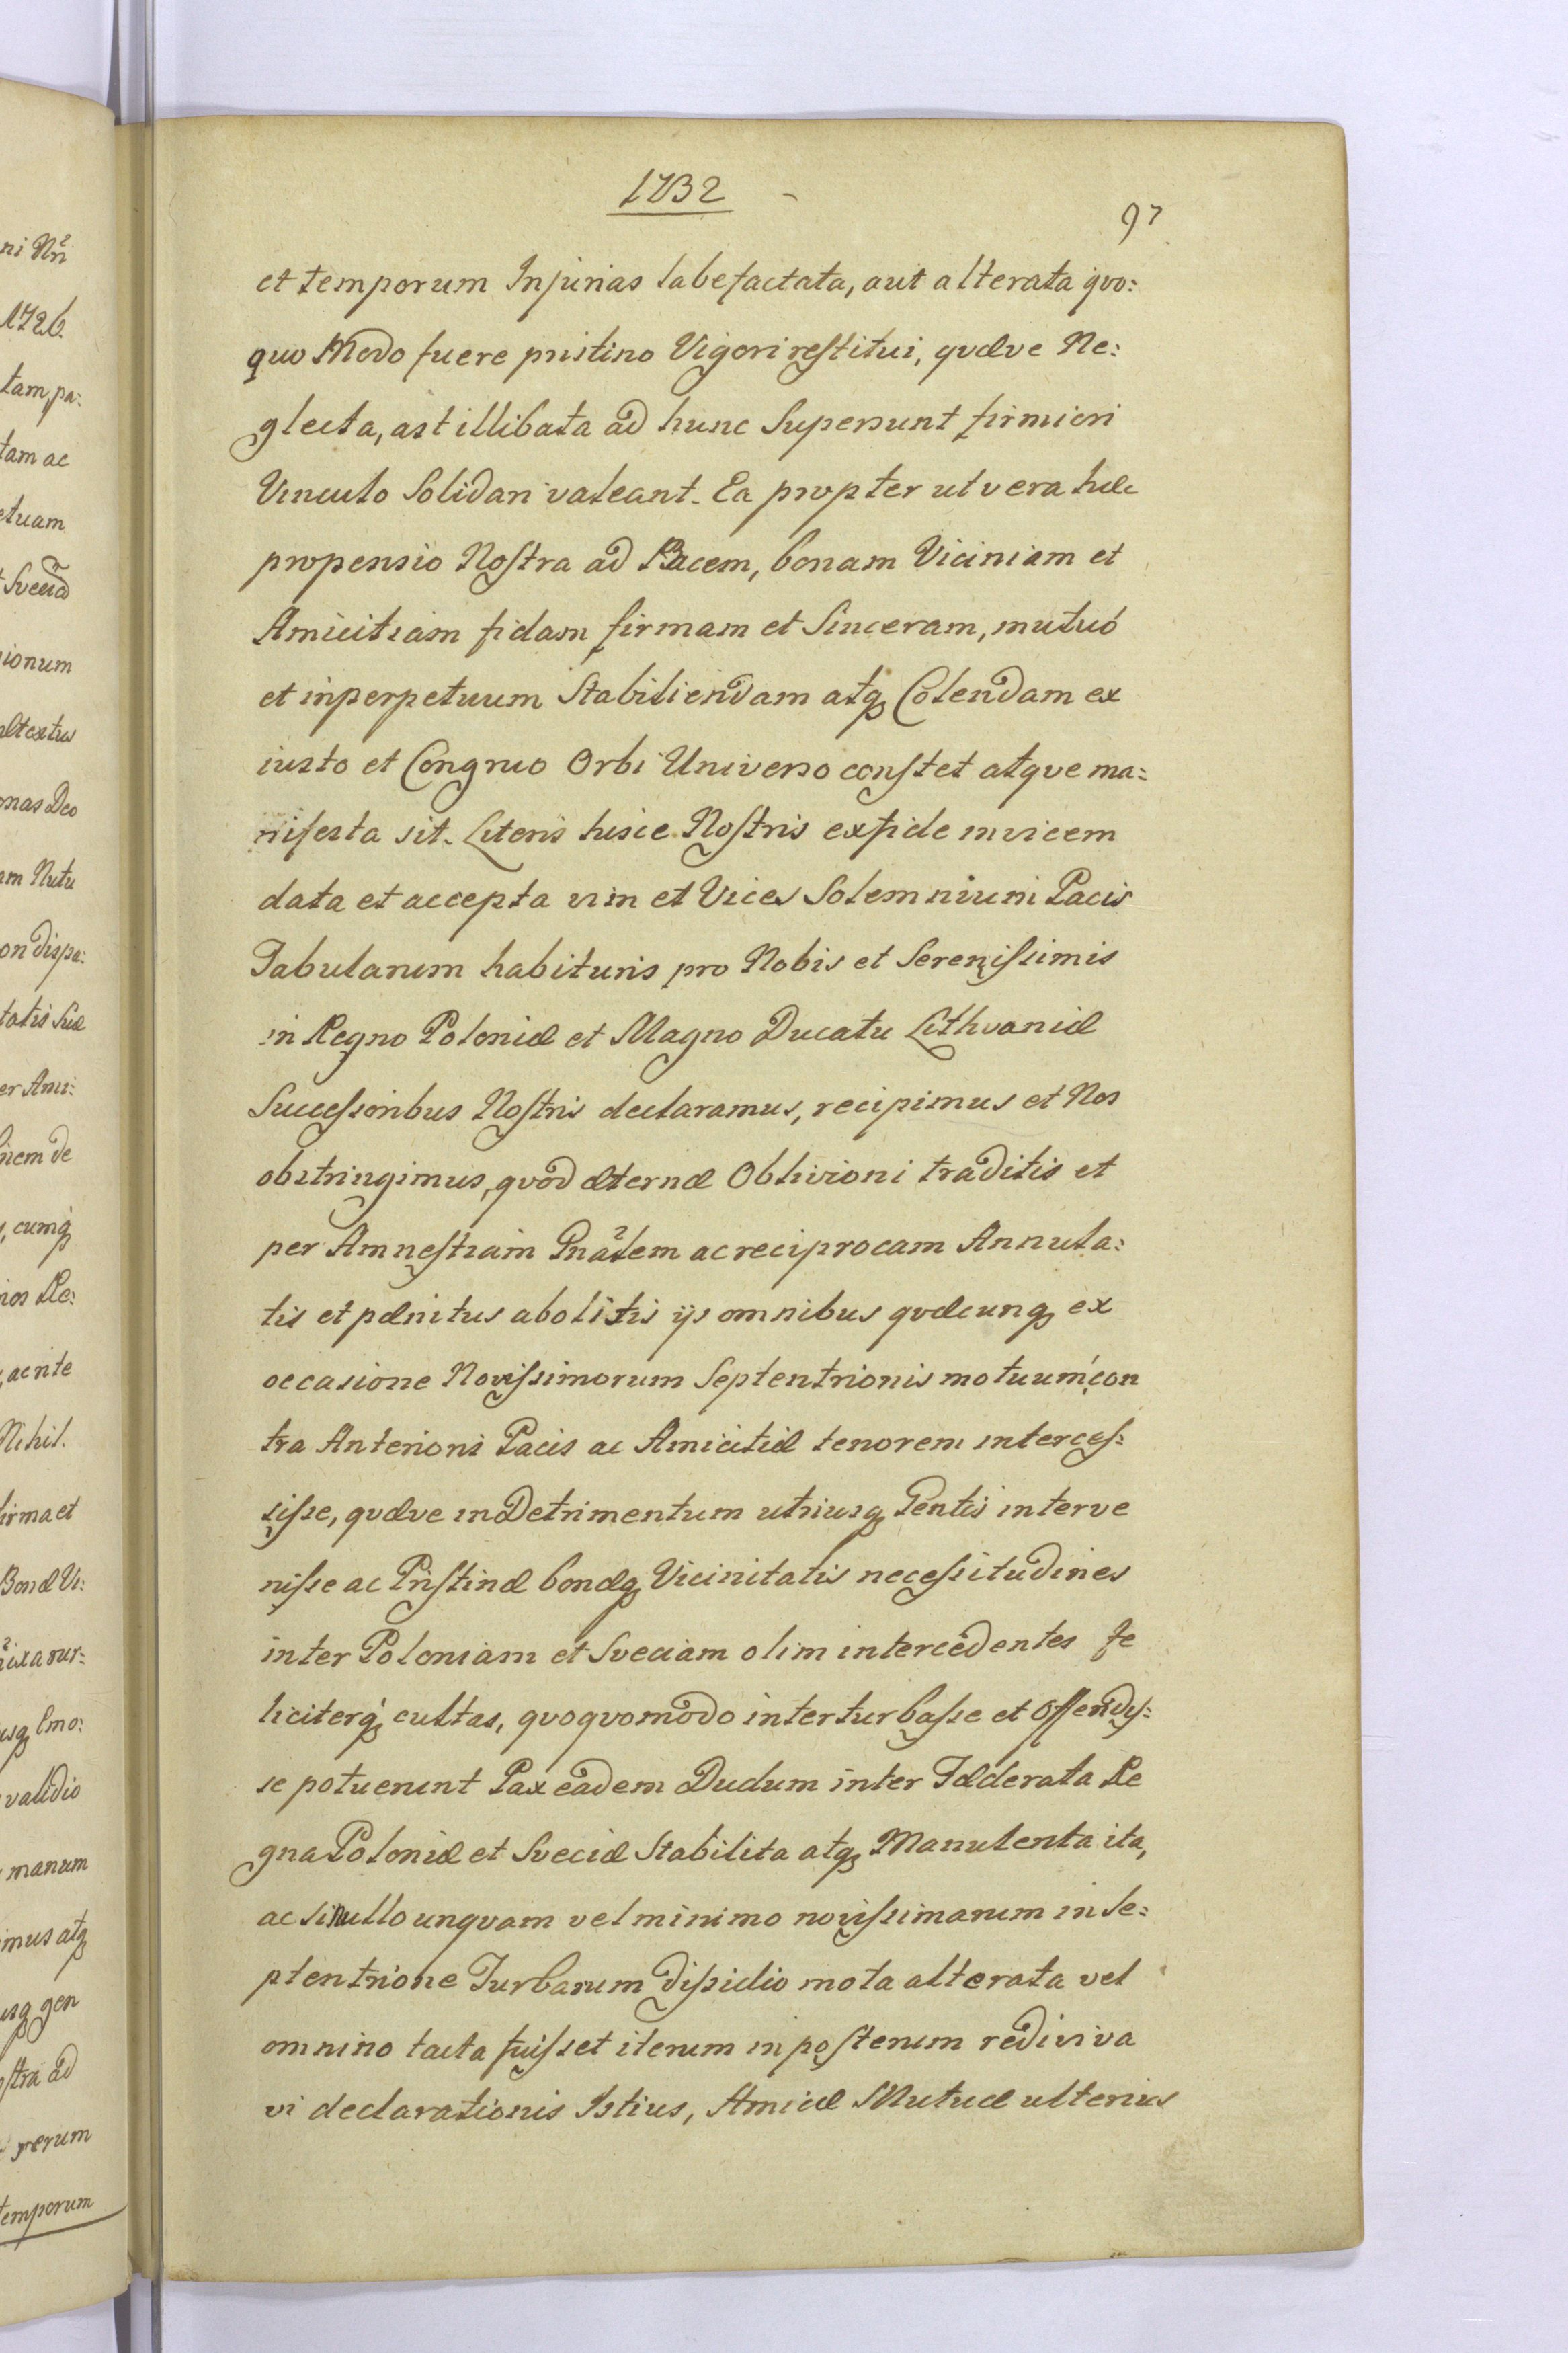 1732
97
et temporum Injurias labefactata, aut alterata qvo:
quo Modo fuere pristino Vigori restitui, qvæve Ne:
glecta, ast illibata ad hunc Supersunt firmiori
Vinculo Solidari valeant. Ea propter ut vera hæc
propensio Nostra ad Pacem, bonam Viciniam et
Amicitiam fidam firmam et Sinceram, mutuó
et inperpetuum Stabiliendam atq Colendam ex
iusto et Congruo Orbi Universo constet atqve ma:
nifesta sit. Literis hisce Nostris exfide invicem
data et accepta vim et Vices Solemnium Pacis
Tabularum habituris pro Nobis et Serenissimis
in Regno Poloniæ et Magno Ducatu Lithvaniæ
Successoribus Nostris declaramus, recipimus et Nos
obstringimus, qvod æternæ Oblivioni traditis et
per Amnestiam Gnãlem ac reciprocam Annula:
tis et pænitus abolitis ijs omnibus qvæcunq ex
occasione Novissimorum Septentrionis motuum con
tra Anterioris Pacis ac Amicitiæ tenorem interces:
sisse, qvæve in Detrimentum utriusq Gentis interve
nisse ac Pristinæ bonæq Vicinitatis necessitudines
inter Poloniam et Sveciam olim intercedentes fe
liciterq cultas, qvoqvomodo interturbasse et Offendis:
se potuerunt Pax eadem Dudum inter Fæderata Re
gna Poloniæ et Sveciæ Stabilita atq Manutenta ita,
ac si nullo unqvam vel minimo novissimarum in Se:
ptentrione Turbarum dissidio mota alterata vel
omnino tacta fuisset iterum in posterum rediviva
vi declarationis Istius, Amicæ Mutuæ ulterius
ni Nñ
1726.
tam, pa:
tam ac
etuam
ionum
onas Deo
am Nutu
on dispe:
tatis Suæ
er Ami:
nem de
, cumq
nos Re:
, ac rite
Nihil.
firma et
Bonæ Vi:
usq
validio
manum
imus atq
usq gen
stra ad
rerum
temporum